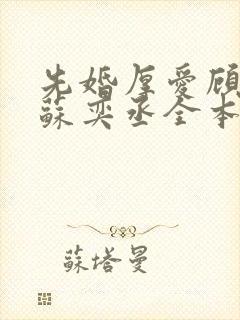 先婚厚愛顾
蘇奕丞全本
蘇塔曼